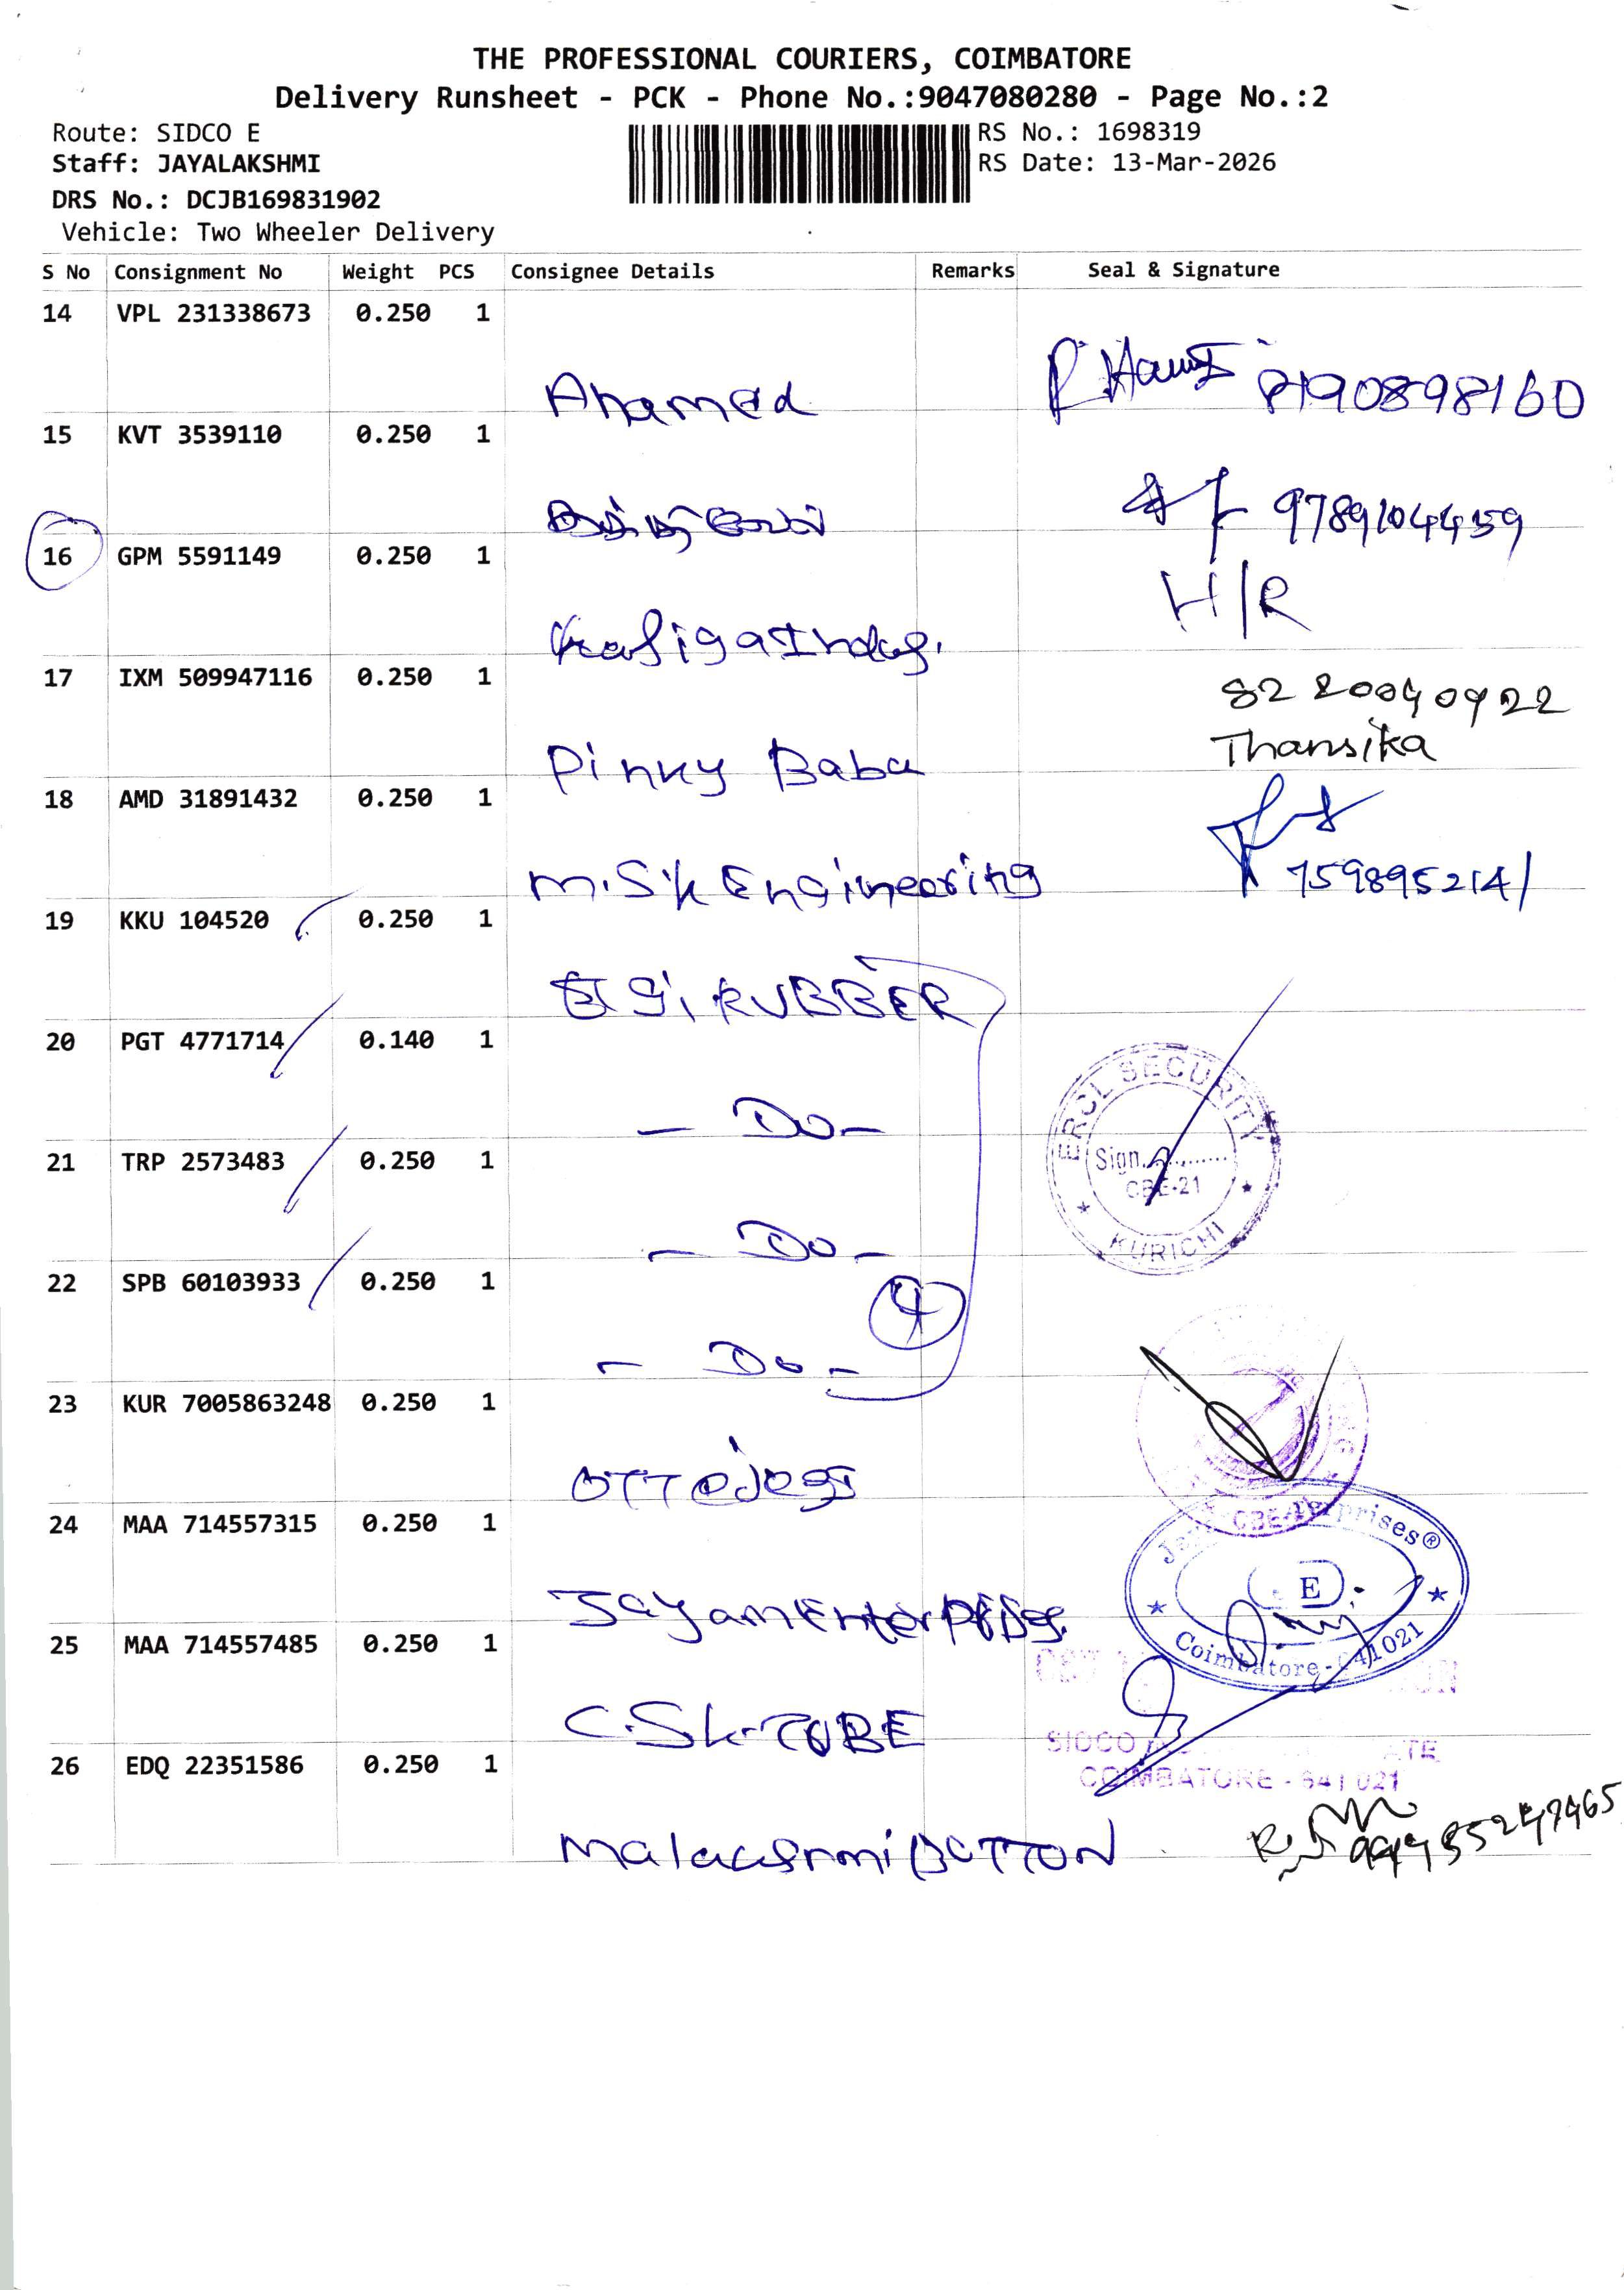 THE PROFESSIONAL COURIERS, COIMBATORE
Delivery Runsheet - PCK - Phone No.:9047080280 - Page No.:2
Route: SIDCO E
Staff: JAYALAKSHMI
DRS No.: DCJB169831902
Vehicle: Two Wheeler Delivery
RS No.: 1698319
RS Date: 13-Mar-2026
S No Consignment No Weight PCS Consignee Details Remarks Seal & Signature
14 VPL 231338673 0.250 1
Ahamed 8190898160
15 KVT 3539110 0.250 1
9789104459
16 GPM 5591149 0.250 1
H/R
17 IXM 509947116 0.250 1
8220040922
Pinky Baba Thansika
18 AMD 31891432 0.250 1
M.Sk Engineering 7598952141
19 KKU 104520 0.250 1
RUBBER
20 PGT 4771714 0.140 1
- Do -
ERCL SECURITY
Sign.
CBE-21
KURICHI
21 TRP 2573483 0.250 1
- Do -
22 SPB 60103933 0.250 1
4
- Do -
23 KUR 7005863248 0.250 1
24 MAA 714557315 0.250 1
Jayam Enterprises
E
Coimbatore - 641021
25 MAA 714557485 0.250 1
C.Sk TUBE
SIDCO
COIMBATORE - 641 021
26 EDQ 22351586 0.250 1
BUTTON